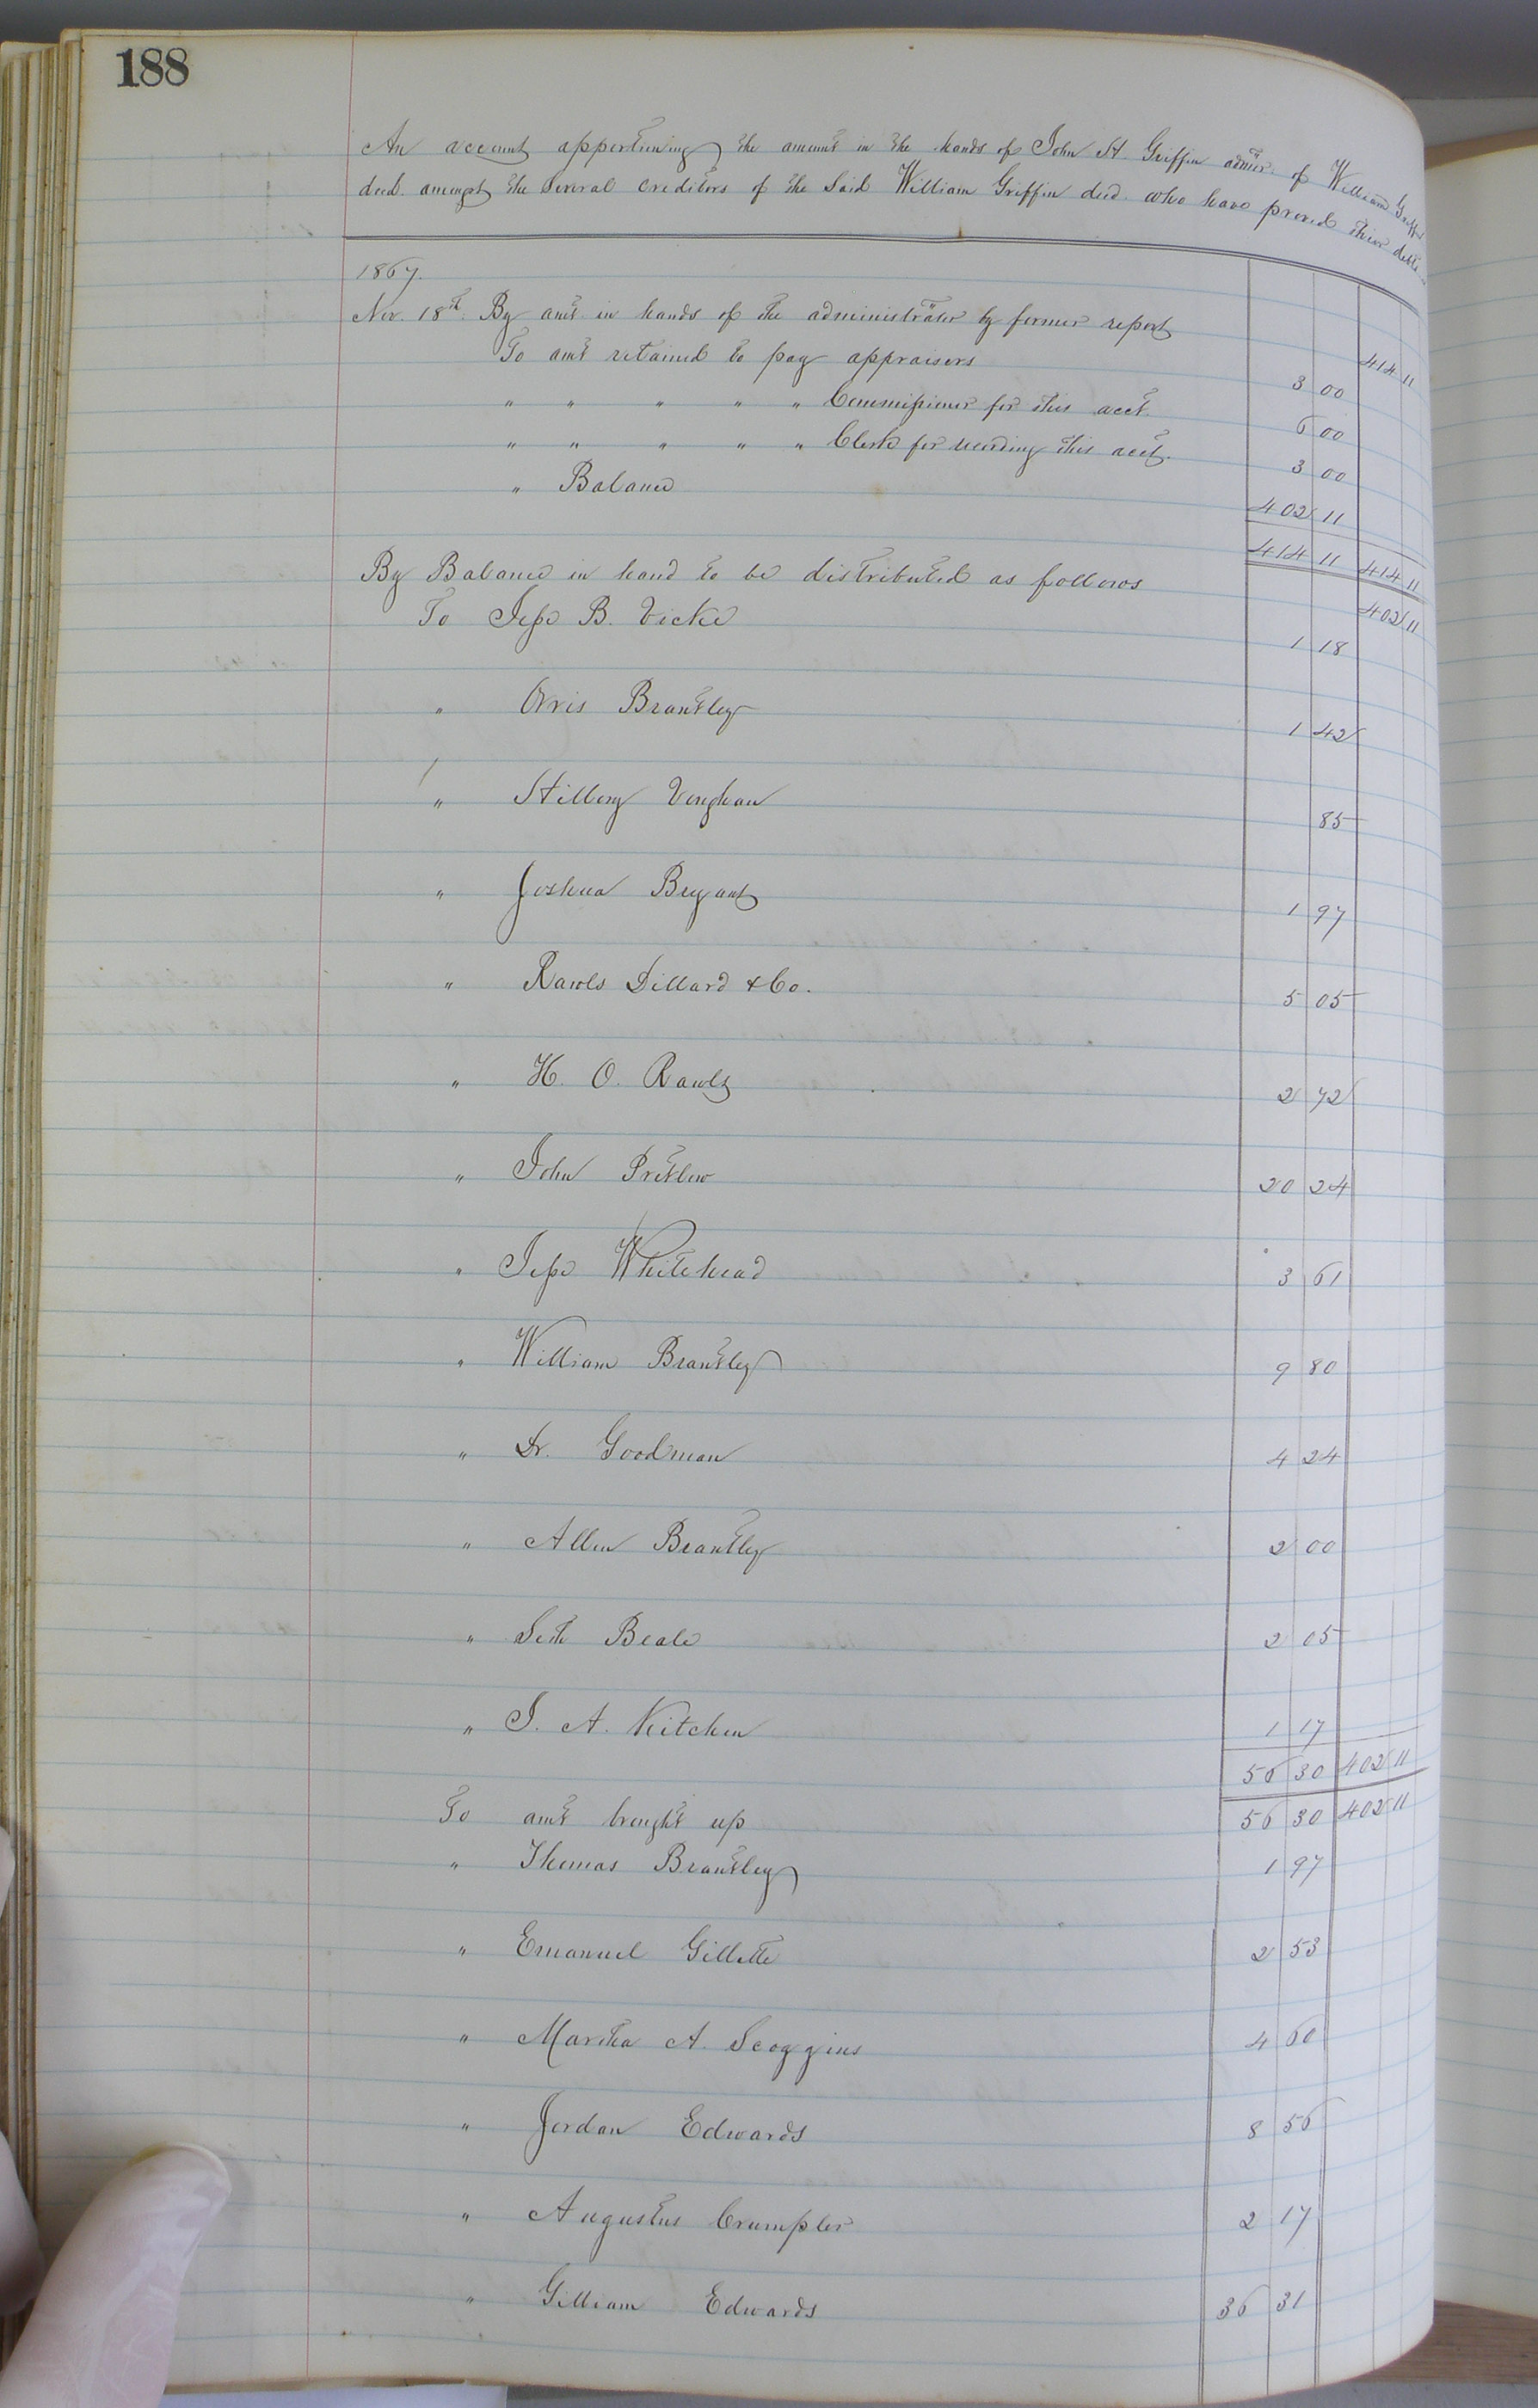 188
An account apportioning the amount in the hands of John H. Griffin admr. of William Griffin
decd. amongst the several creditors of the said William Griffin decd. who have proved their debts
1867.
Nov. 18th. By amt in hands of the administrator by former report 414 11
To amt retained to pay appraisers 3 00
" " " " " Commissioner for this acct. 6 00
" " " " " Clerk for recording this acct. 3 00
" Balance 402 11
414 11 414 11
By Balance in hand to be distributed as follows 402 11
To Jesse B. Vick 1 18
" Orris Brantley 1 42
" Stilbery Vaughan 85
" Joshua Bryant 1 97
" Rawls Dillard & Co. 5 05
" H. O. Rawls 2 72
" John Pretlow 20 24
" Jesse Whitehead 3 61
" William Brantley 9 80
" Dr. Goodman 4 24
" Allen Brantley 2 00
" Seth Beale 2 05
" J. A. Kitchen 1 17
56 30 402 11
To amt brought up 56 30 402 11
" Thomas Brantley 1 97
" Emanuel Gillette 2 53
" Martha A. Scoggins 4 60
" Jordan Edwards 8 56
" Augustus Crumpler 2 17
" Gilliam Edwards 36 31